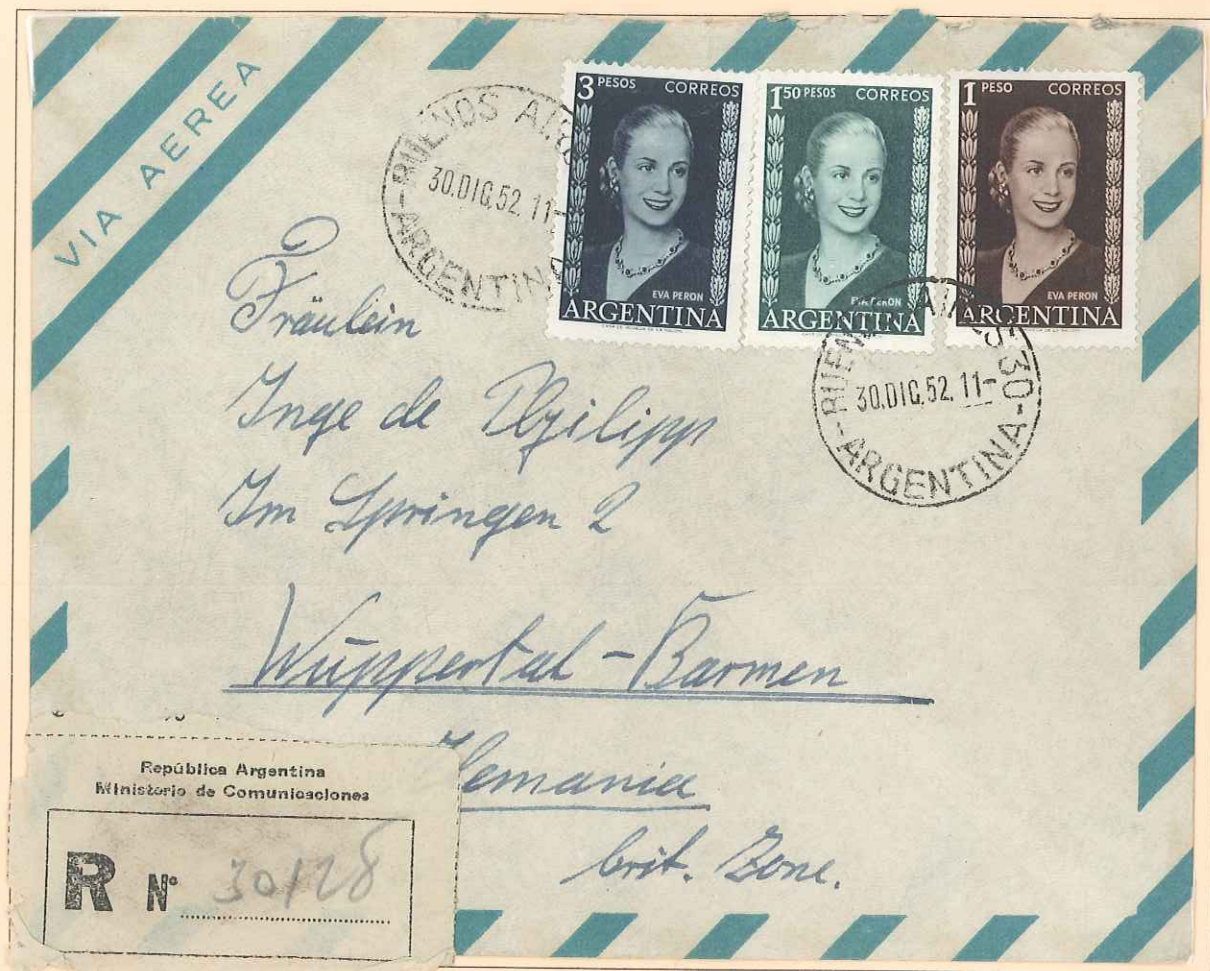 VIA AEREA
3 PESOS CORREOS
EVA PERON
ARGENTINA
1 50 PESOS CORREOS
EVA PERON
ARGENTINA
1 PESO CORREOS
EVA PERON
ARGENTINA
BUENOS AIRE
30.DIC.52. 11-
ARGENTINA
BUEN AIRES 30
30.DIC.52. 11-
ARGENTINA
Fräulein
Inge de
Im Springen 2
Wuppertal-Barmen
lemania
brit. Zone.
República Argentina
Ministerio de Comunicaciones
R Nº 30128